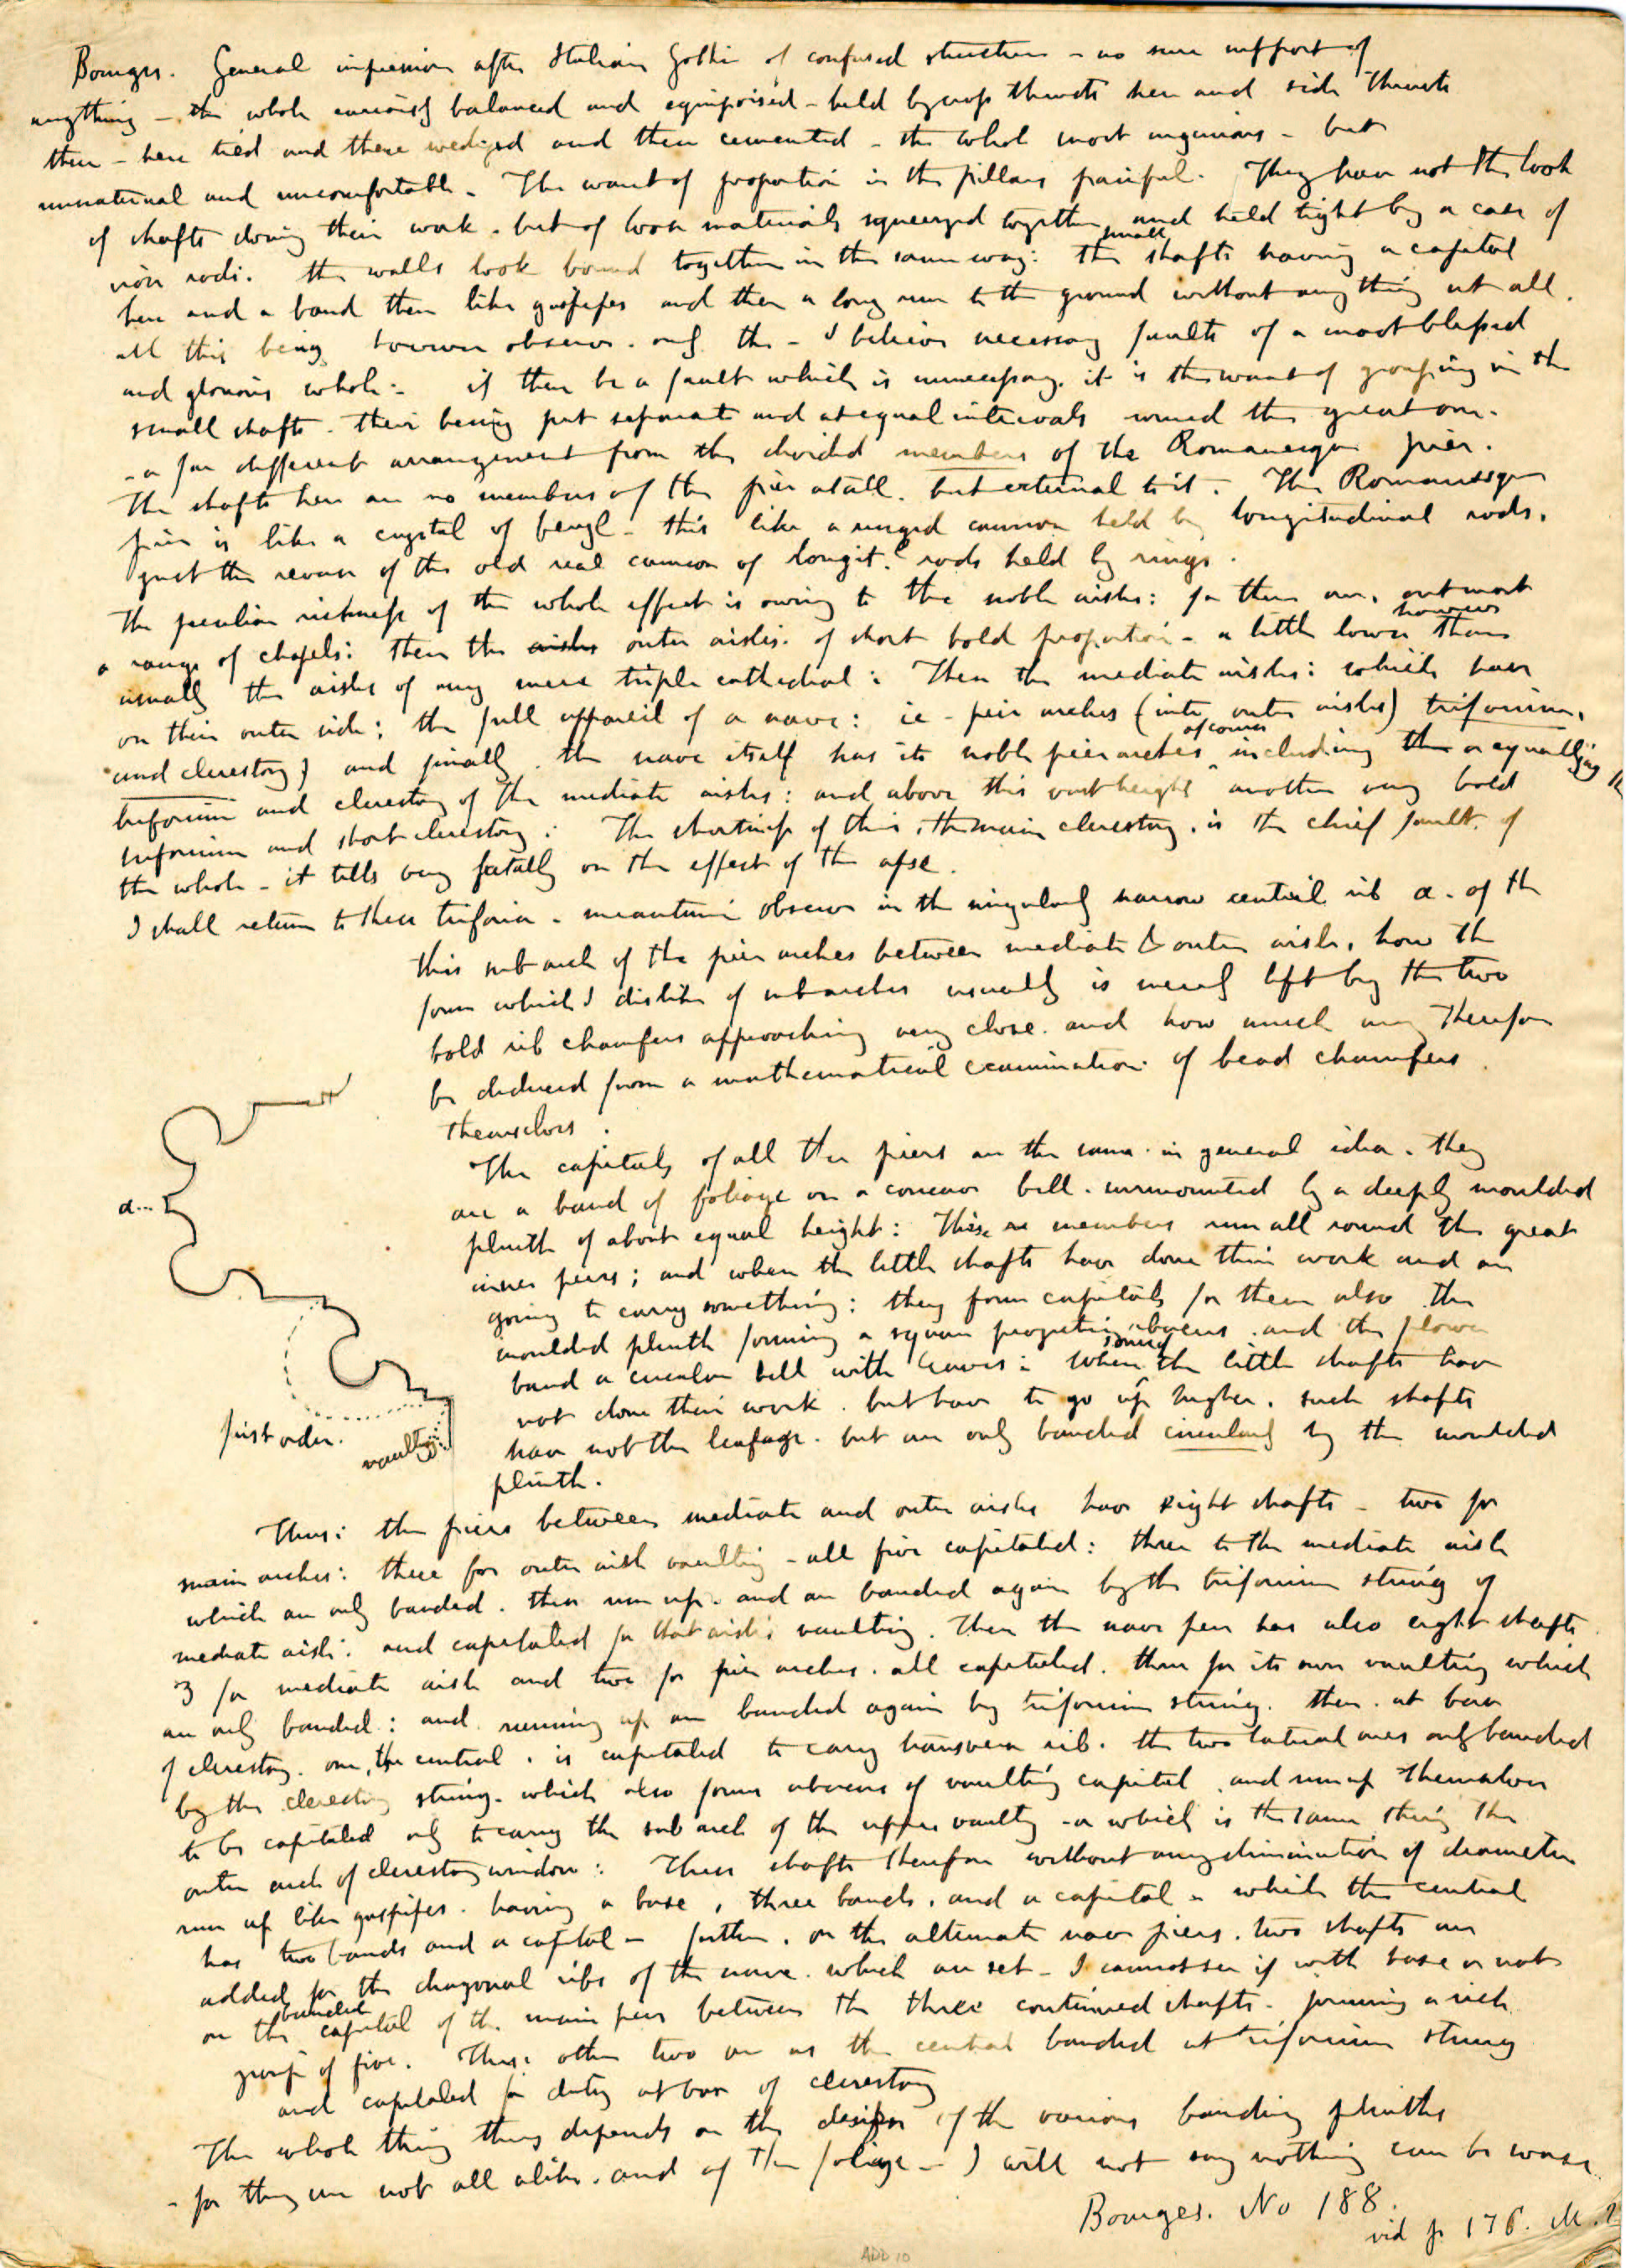 Bourges. General impression after Italian Gothic of confused structure - no sure support of
anything - the whole curiously balanced and equipoised - held by cross thrusts here and side thrusts
there - here tied and there wedged and then cemented - the whole most ingenious - but
unnatural and uncomfortable. The want of proportion in the pillars painful. They have not the look
of shafts doing their work. but of loose materials squeezed together and held tight by a case of
iron rods. the walls look bound together in the same way: the small shafts having a capital
here and a band there like gaspipes and then a long run to the ground without any thing at all.
all this being however observe. only the - I believe necessary faults of a most blessed
and glorious whole - if there be a fault which is unnecessary. it is the want of grouping in the
small shafts. their being put separate and at equal intervals round the great one.
- a far different arrangement from the divided members of the Romanesque pier.
The shafts here are no members of the pier at all. but external to it. The Romanesque
pier is like a crystal of beryl - this like a ringed cannon held by longitudinal rods.
just the reverse of the old real cannon of longitl rods held by rings.
The peculiar richness of the whole effect is owing to the noble aisles: for there are. outmost
a range of chapels: then the aisles outer aisles. of short bold proportion - a little lower however than
usually the aisles of any mere triple cathedral: Then the mediate aisles: which have
on their outer side; the full appareil of a nave: ie - pier arches (into outer aisles) triforium,
and clerestory; and finally. the nave itself has its noble pier arches of course including the or equalling the
triforium and clerestory of the mediate aisles: and above this vast height another very bold
triforium and short clerestory: The shortness of this, the main clerestory. is the chief fault of
the whole - it tells very fatally on the effect of the apse.
I shall return to these triforia - meantime observe in the singularly narrow central rib a. of the
this subarch of the pier arches between mediate & outer aisle, how the
form which I dislike of subarches usually is merely left by the two
bold rib chamfers approaching very close. and how much may therefore
be deduced from a mathematical examination of bead chamfers
themselves.
a...
The capitals of all the piers are the same. in general idea. they
are a band of foliage on a concave bell. surmounted by a deeply moulded
plinth of about equal height: These members run all round the great
inner piers; and when the little shafts have done their work and are
going to carry something: they form capitals for them also the
moulded plinth forming a square projecting abacus. and the flower
band a circular bell with leaves round: When the little shafts have
not done their work. but have to go up higher. such shafts
have not the leafage. but are only banded circularly by the moulded
plinth.
first order.
vaulting
Thus: the piers between mediate and outer aisles have eight shafts - two for
main arches: three for outer aisle vaulting - all five capitaled: three to the mediate aisle
which are only banded. then run up. and are banded again by the triforium string of
mediate aisle: and capitaled for that aisle's vaulting. Then the nave pier has also eight shafts
3 for mediate aisle and two for pier arches. all capitaled. three for its own vaulting which
are only banded: and running up are banded again by triforium string. then. at base
of clerestory. one, the central. is capitaled to carry transverse rib. the two lateral ones only banded
by the clerestory string. which also forms abacus of vaulting capital. and run up themselves
to be capitaled only to carry the sub arch of the upper vaulting - or which is the same thing the
outer arch of clerestory window: These shafts therefore without any diminution of diameter
run up like gaspipes. having a base, three bands, and a capital - while the central
has two bands and a capital - further. on the alternate nave piers. two shafts are
added for the diagonal ribs of the nave. which are set - I cannot see if with base or not
on the banded capital of the main pier between the three continued shafts - forming a rich
group of five. These other two are as the central banded at triforium string
and capitaled for duty at base of clerestory
The whole thing thus depends on the design of the various banding plinths
- for they are not all alike. and of the foliage - I will not say nothing can be worse
Bourges. No 188.
vid p 176. M.2
ADD 10